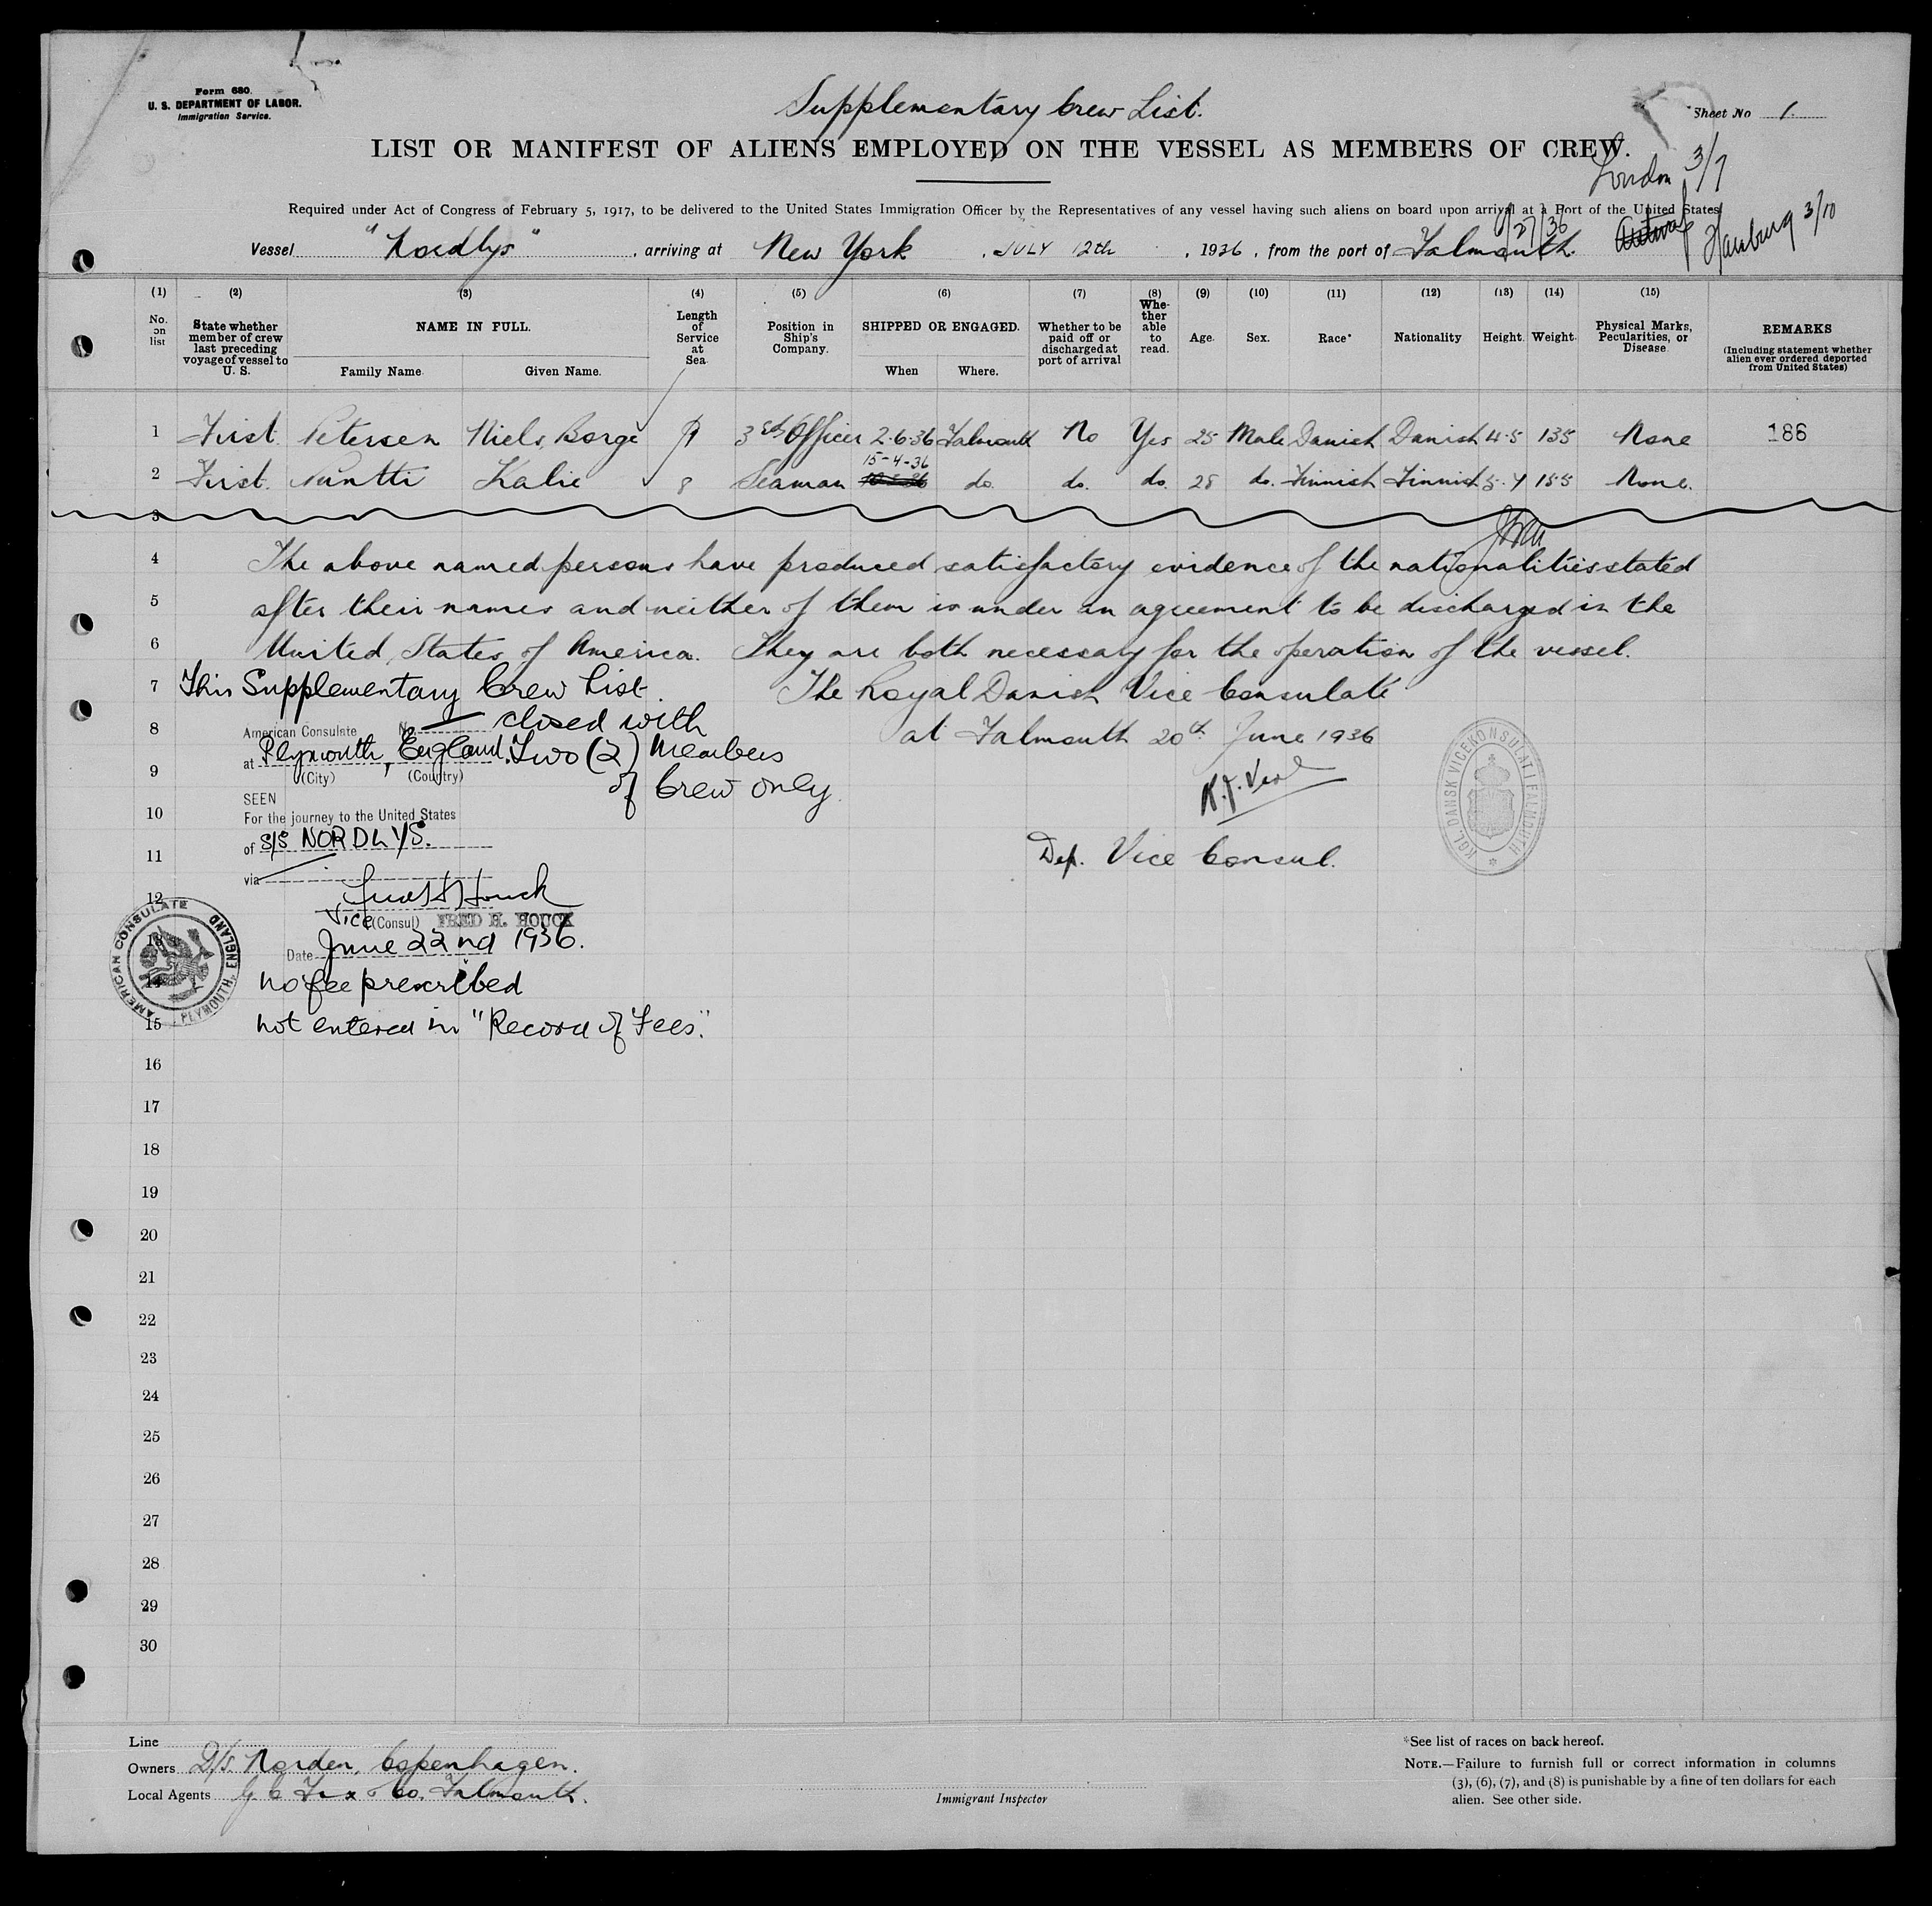 Form 680.
U. S. DEPARTMENT OF LABOR.
Immigration Service.
Supplementary Crew List.
Sheet No 1.
LIST OR MANIFEST OF ALIENS EMPLOYED ON THE VESSEL AS MEMBERS OF CREW.
London 3/7
Required under Act of Congress of February 5, 1917, to be delivered to the United States Immigration Officer by the Representatives of any vessel having such aliens on board upon arrival at a Port of the United States
Hamburg 3/10
6/27/36
Vessel "Nordlys", arriving at New York, JULY 12th, 1936, from the port of Falmouth.
(1) (2) (3) (4) (5) (6) (7) (8) (9) (10) (11) (12) (13) (14) (15)
No. on list
State whether member of crew last preceding voyage of vessel to U. S.
NAME IN FULL.
Family Name Given Name.
Length of Service at Sea
Position in Ship's Company.
SHIPPED OR ENGAGED.
When Where.
Whether to be paid off or discharged at port of arrival
Whether able to read.
Age. Sex. Race* Nationality Height Weight
Physical Marks, Pecularities, or Disease
REMARKS
(Including statement whether alien ever ordered deported from United States)
1 First Petersen Niels, Borge 3rd Officer 2-6-36 Falmouth No Yes 25 Male Danish Danish 4-5 135 None 186
15-4-36
2 First. Kalie 8 Seaman do. do. do. 28 do. Finnish Finnish 5-7 155 None.
3
4 The above named persons have produced satisfactory evidence of the nationalities stated
5 after their names and neither of them is under an agreement to be discharged in the
6 United States of America. They are both necessary for the operation of the vessel.
7 This Supplementary Crew List. The Royal Danish Vice Consulate
8 American Consulate No. — closed with at Falmouth 20th June 1936
at Plymouth, England. Two (2) Members
9 (City) (Country) of Crew only.
SEEN
10 For the journey to the United States
of S/S NORDLYS.
11 Dep. Vice Consul.
via
KGL. DANSK VICEKONSULAT I FALMOUTH
12 Fred H Houck
Vice (Consul) FRED H. HOUCK
13 Date June 22nd 1936.
AMERICAN CONSULATE PLYMOUTH, ENGLAND
14 no fee prescribed
15 not entered in "Record of Fees."
16
17
18
19
20
21
22
23
24
25
26
27
28
29
30
Line
Owners D/S. Norden, Copenhagen.
Local Agents G C Fox & Co. Falmouth.
Immigrant Inspector
*See list of races on back hereof.
NOTE.—Failure to furnish full or correct information in columns
(3), (6), (7), and (8) is punishable by a fine of ten dollars for each
alien. See other side.